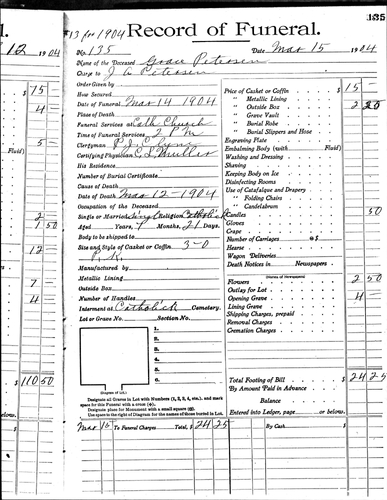 1.
12, 1904
#13 for 1904
Record of Funeral.
135
No. 135
Date Mar 15 1904
Name of the Deceased Grace Petersen
Charge to J A Petersen
Order Given by
How Secured
Date of Funeral Mar 14 1904
Place of Death
Funeral Services at Cath Church
Time of Funeral Services 2 P.M.
Clergyman
Certifying Physician
His Residence
Number of Burial Certificate
Cause of Death
Date of Death Mar 12 - 1904
Occupation of the Deceased
Single or Married Single Religion Catholick
Aged Years, 9 Months, 21 Days.
Body to be shipped to
Size and Style of Casket or Coffin 3-0
Manufactured by
Metallic Lining
Outside Box
Number of Handles
Interment at Catholick Cemetery.
Lot or Grave No. Section No.
1.
2.
3.
4.
5.
6.
(Diagram of Lot.)
Designate all Graves in Lot with Numbers (1, 2, 3, 4, etc.), and mark
space for this Funeral with a cross (+).
Designate place for Monument with a small square (□).
Use space to the right of Diagram for the names of those buried in Lot.
Price of Casket or Coffin $ 15
" Metallic Lining
" Outside Box 2 20
" Grave Vault
" Burial Robe
" Burial Slippers and Hose
Engraving Plate
Embalming Body (with Fluid)
Washing and Dressing
Shaving
Keeping Body on Ice
Disinfecting Rooms
Use of Catafalque and Drapery
" Folding Chairs
" Candelabrum
Candles 50
Gloves
Crape
Number of Carriages @ $
Hearse
Wagon Deliveries
Death Notices in Newspapers
(Names of Newspapers)
Flowers 2 50
Outlay for Lot
Opening Grave 4
Lining Grave
Shipping Charges, prepaid
Removal Charges
Cremation Charges
Total Footing of Bill $ 24 25
By Amount Paid in Advance
Balance
Entered into Ledger, page or below.
Mar 15 To Funeral Charges Total, $ 24 25
By Cash $
$ 75
4
Fluid)
5
2
1 50
12
7
4
$ 110 50
below.